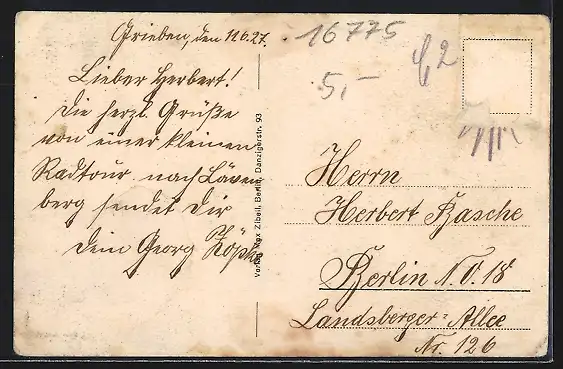 Grieben, den 11.6.27.
Lieber Herbert!
Die herzl. Grüße
von einer kleinen
Radtour nach Löwen
berg sendet Dir
Dein Georg
Verlag Max Zibell, Berlin, Danzigerstr. 93
16775
5,-
Herrn
Herbert Basche
Berlin N.O. 18
Landsberger-Allee
Nr. 126